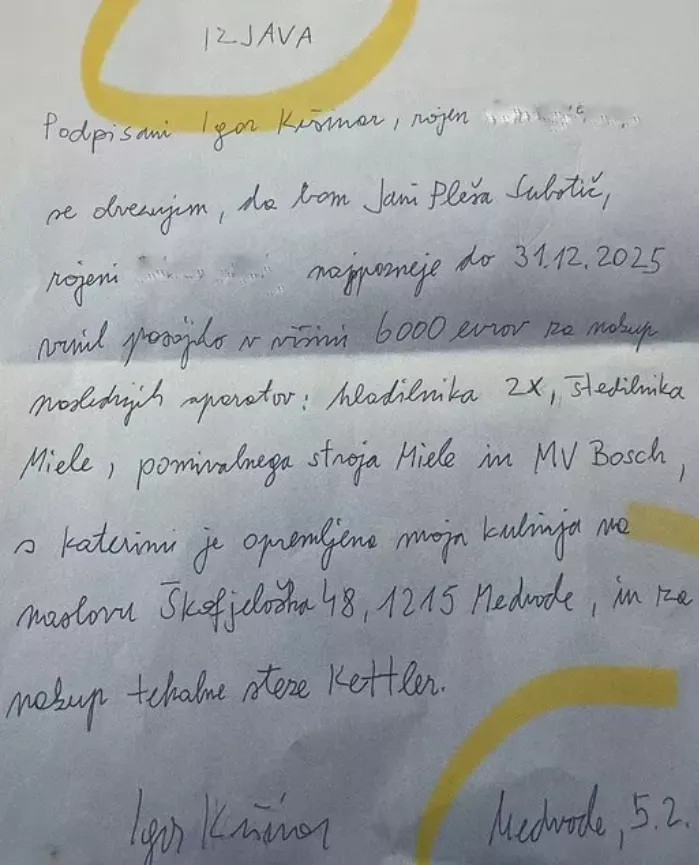 IZJAVA
Podpisani Igor Kršinar, rojen
se obvezujem, da bom Jani Pleša Subotič,
rojeni najpozneje do 31.12.2025
vrnil posojilo v višini 6000 evrov za nakup
naslednjih aparatov: hladilnika 2X, štedilnika
Miele, pomivalnega stroja Miele in MV Bosch,
s katerimi je opremljena moja kuhinja na
naslovu Škofjeloška 48, 1215 Medvode, in za
nakup tekalne steze Kettler.
Igor Kršinar Medvode, 5.2.